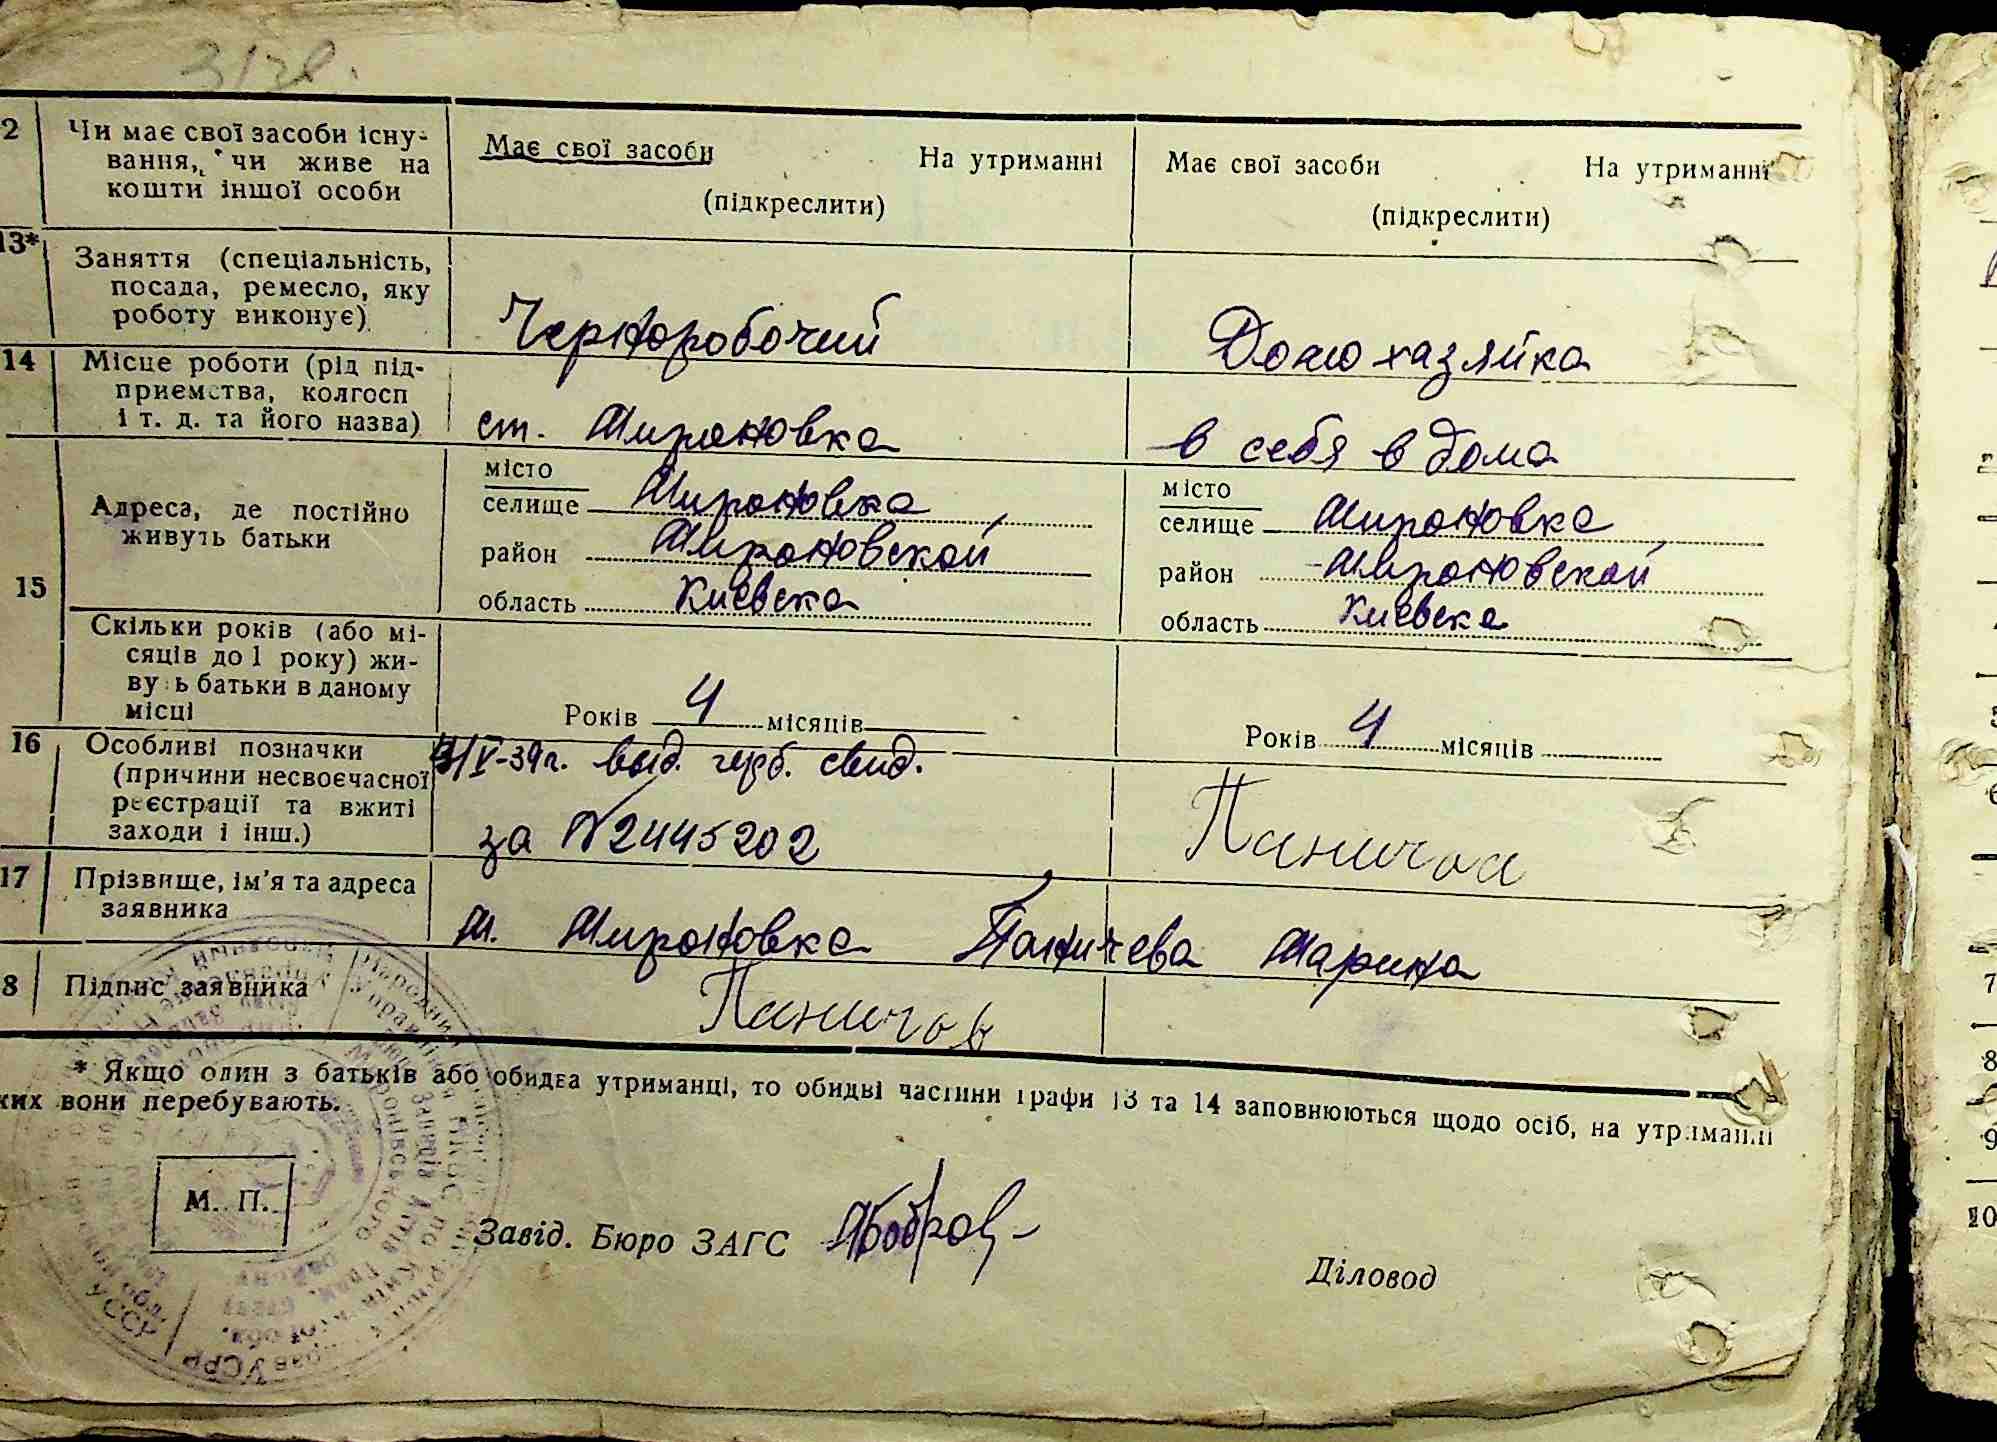 2 Чи має свої засоби існу-
вання, чи живе на
кошти іншої особи
Має свої засоби На утриманні
(підкреслити)
Має свої засоби На утриманні
(підкреслити)
13* Заняття (спеціальність,
посада, ремесло, яку
роботу виконує)
Черноробочий
Домохазяйка
14 Місце роботи (рід під-
приємства, колгосп
і т. д. та його назва)
ст. Мироновка
в себя в дома
15
Адреса, де постійно
живуть батьки
місто
селище Мироновка
район Мироновской
область Киевска
місто
селище Мироновка
район Мироновской
область Киевска
Скільки років (або мі-
сяців до 1 року) жи-
вуть батьки в даному
місці
Років 4 місяців
Років 4 місяців
16 Особливі позначки
(причини несвоєчасної
реєстрації та вжиті
заходи і інш.)
/V-39г. выд. герб. свид.
за №2445202
17 Прізвище, ім'я та адреса
заявника
м. Мироновка Паничева Марина
8 Підпис заявника
Паничов
* Якщо один з батьків або обидва утриманці, то обидві частини графи 13 та 14 заповнюються щодо осіб, на утриманні
ких вони перебувають.
М. П.
Завід. Бюро ЗАГС
Діловод
УССР